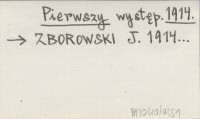 Pierwszy występ. 1914.
→ ZBOROWSKI J. 1914...